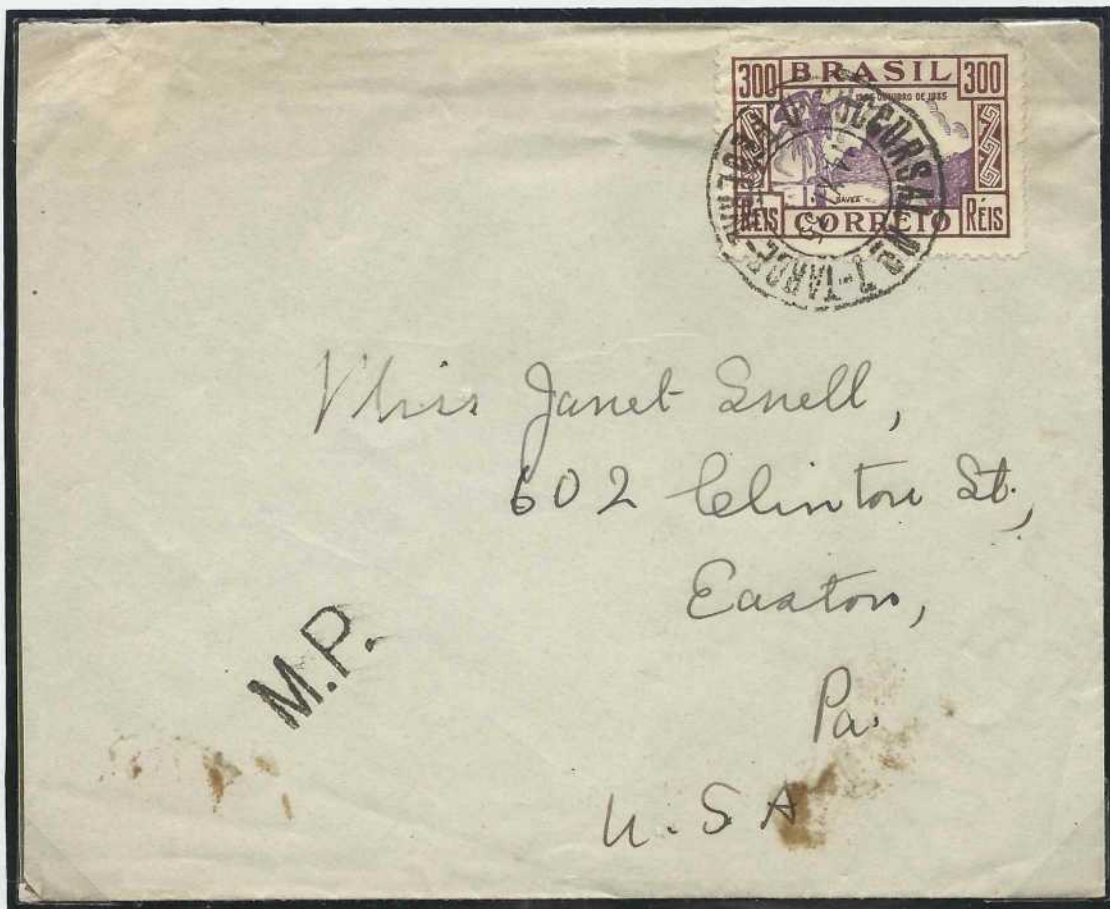 300 BRASIL 300
OUTUBRO DE 1935
GAVEA
RÉIS CORREIO RÉIS
SUCCURSAL Nº 7-TARDE
Miss Janet Snell,
602 Clinton St.,
Easton,
Pa.
U.S A
M.P.